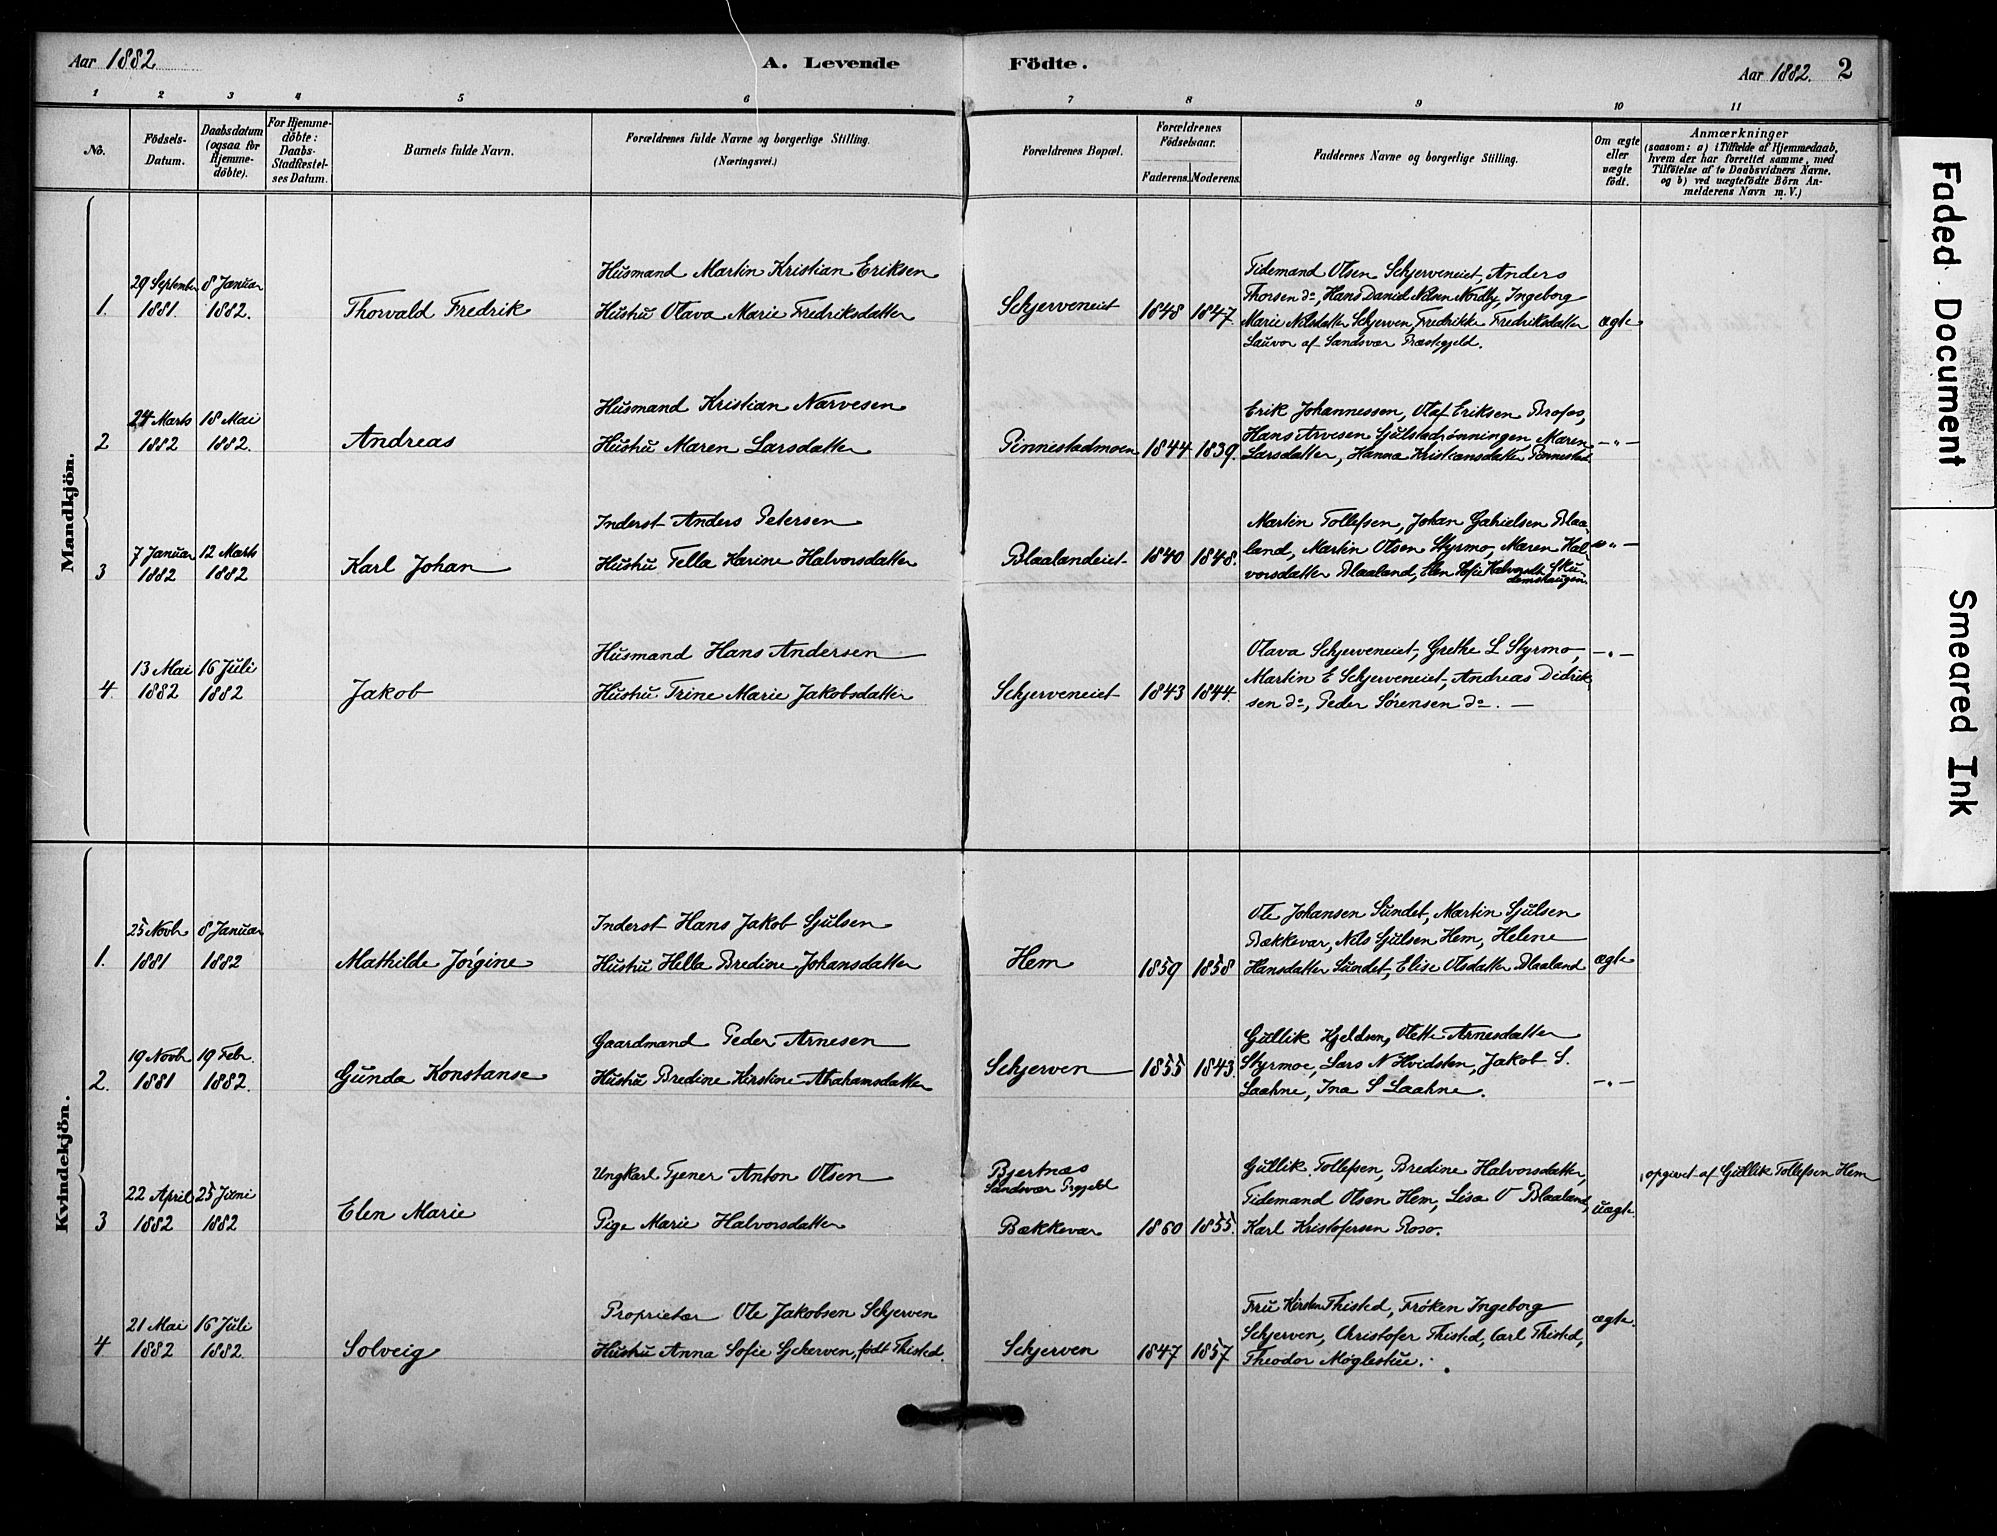 Aar 1882
A. Levende Födte.
Aar 1882. 2
1 2 3 4 5 6 7 8 9 10 11
No.
Födsels-
Datum.
Daabsdatum
(ogsaa for
Hjemme-
döbte).
For Hjemme-
döbte:
Daabs-
Stadfæstel-
ses Datum.
Barnets fulde Navn.
Forældrenes fulde Navne og borgerlige Stilling.
(Næringsvei.)
Forældrenes Bopæl.
Forældrenes
Födselsaar.
Faderens. Moderens.
Faddernes Navne og borgerlige Stilling.
Om ægte
eller
uægte
født.
Anmærkninger
(saasom: a) i Tilfælde af Hjemmedaab,
hvem der har forrettet samme, med
Tilföielse af to Daabsvidners Navne.
og b) ved uægtefödte Börn An-
melderens Navn m. V.)
Mandkjön.
1.
29 September
1881
8 Januar
1882.
Thorvald Fredrik
Husmand Martin Kristian Eriksen
Hustru Olava Marie Fredriksdatter
Schjerveneiet
1848 1847
Tidemand Olsen Schjerveneiet, Anders
Thorsen do, Hans Daniel Nilsen Nordby, Ingeborg
Marie Nilsdatter Schjerven, Fredrikke Fredriksdatter
Lauvor af Sandsvær Præstegjeld.
ægte
2
24 Marts
1882
18 Mai
1882.
Andreas
Husmand Kristian Narvesen
Hustru Maren Larsdatter
Pinnestadmoen
1844 1839.
Erik Johannessen, Olaf Eriksen Brofos,
Hans Arvesen Gjulstadrønningen, Maren
Larsdatter, Hanna Kristiansdatter Pinnestad
—"—
3
7 Januar
1882
12 Marts
1882
Karl Johan
Inderst Anders Petersen
Hustru Tella Karine Halvorsdatter
Blaalandeiet
1840 1848.
Martin Tollefsen, Johan Gabrielsen Blaa-
land, Martin Olsen Styrmo, Maren Hal-
vorsdatter Blaaland, Elen Sofie Halvorsdt Sku-
demshaugen
—"—
4.
13 Mai
1882
16 Juli
1882
Jakob
Husmand Hans Andersen
Hustru Trine Marie Jakobsdatter
Schjerveneiet
1843 1844.
Olava Schjerveneiet, Grethe L Styrmo,
Martin E Schjerveneiet, Andreas Didrik-
sen do, Peder Sørensen do. —
—"—
Kvindekjön.
1.
25 Novbr
1881
8 Januar
1882
Mathilde Jørgine
Inderst Hans Jakob Gjulsen
Hustru Hella Bredine Johansdatter
Hem
1859 1858
Ole Johansen Sundet, Martin Gjulsen
Bækkevar, Nils Gjulsen Hem, Helene
Hansdatter Sundet, Elise Olsdatter Blaaland
ægte
2.
19 Novbr
1881
19 Febr.
1882.
Gunda Konstanse
Gaardmand Peder Arnesen
Hustru Bredine Kirstine Abrahamsdatter
Schjerven
1855 1843.
Gullik Kjeldsen, Olette Arnesdatter
Styrmoe, Lars N Hvidsten, Jakob S.
Laahne, Ina S Laahne.
—"—
3
22 April
1882
25 Juni
1882
Elen Marie
Ungkarl Tjener Anton Olsen
Pige Marie Halvorsdatter
Bjertnæs
Sandsvær Prgjeld
Bækkevar
1860 1855.
Gullik Tollefsen, Bredine Halvorsdatter,
Tidemand Olsen Hem, Lisa O Blaaland,
Karl Kristofersen Roso.
uægte.
opgivet af Gullik Tollefsen Hem
4
21 Mai
1882
16 Juli
1882.
Solveig
Proprietær Ole Jakobsen Schjerven
Hustru Anna Sofie Schjerven, født Thisted.
Schjerven
1847 1857
Fru Kirsten Thisted, Frøken Ingeborg
Schjerven, Christofer Thisted, Carl Thisted,
Theodor Møglestue.
ægte.
Faded Document
Smeared Ink